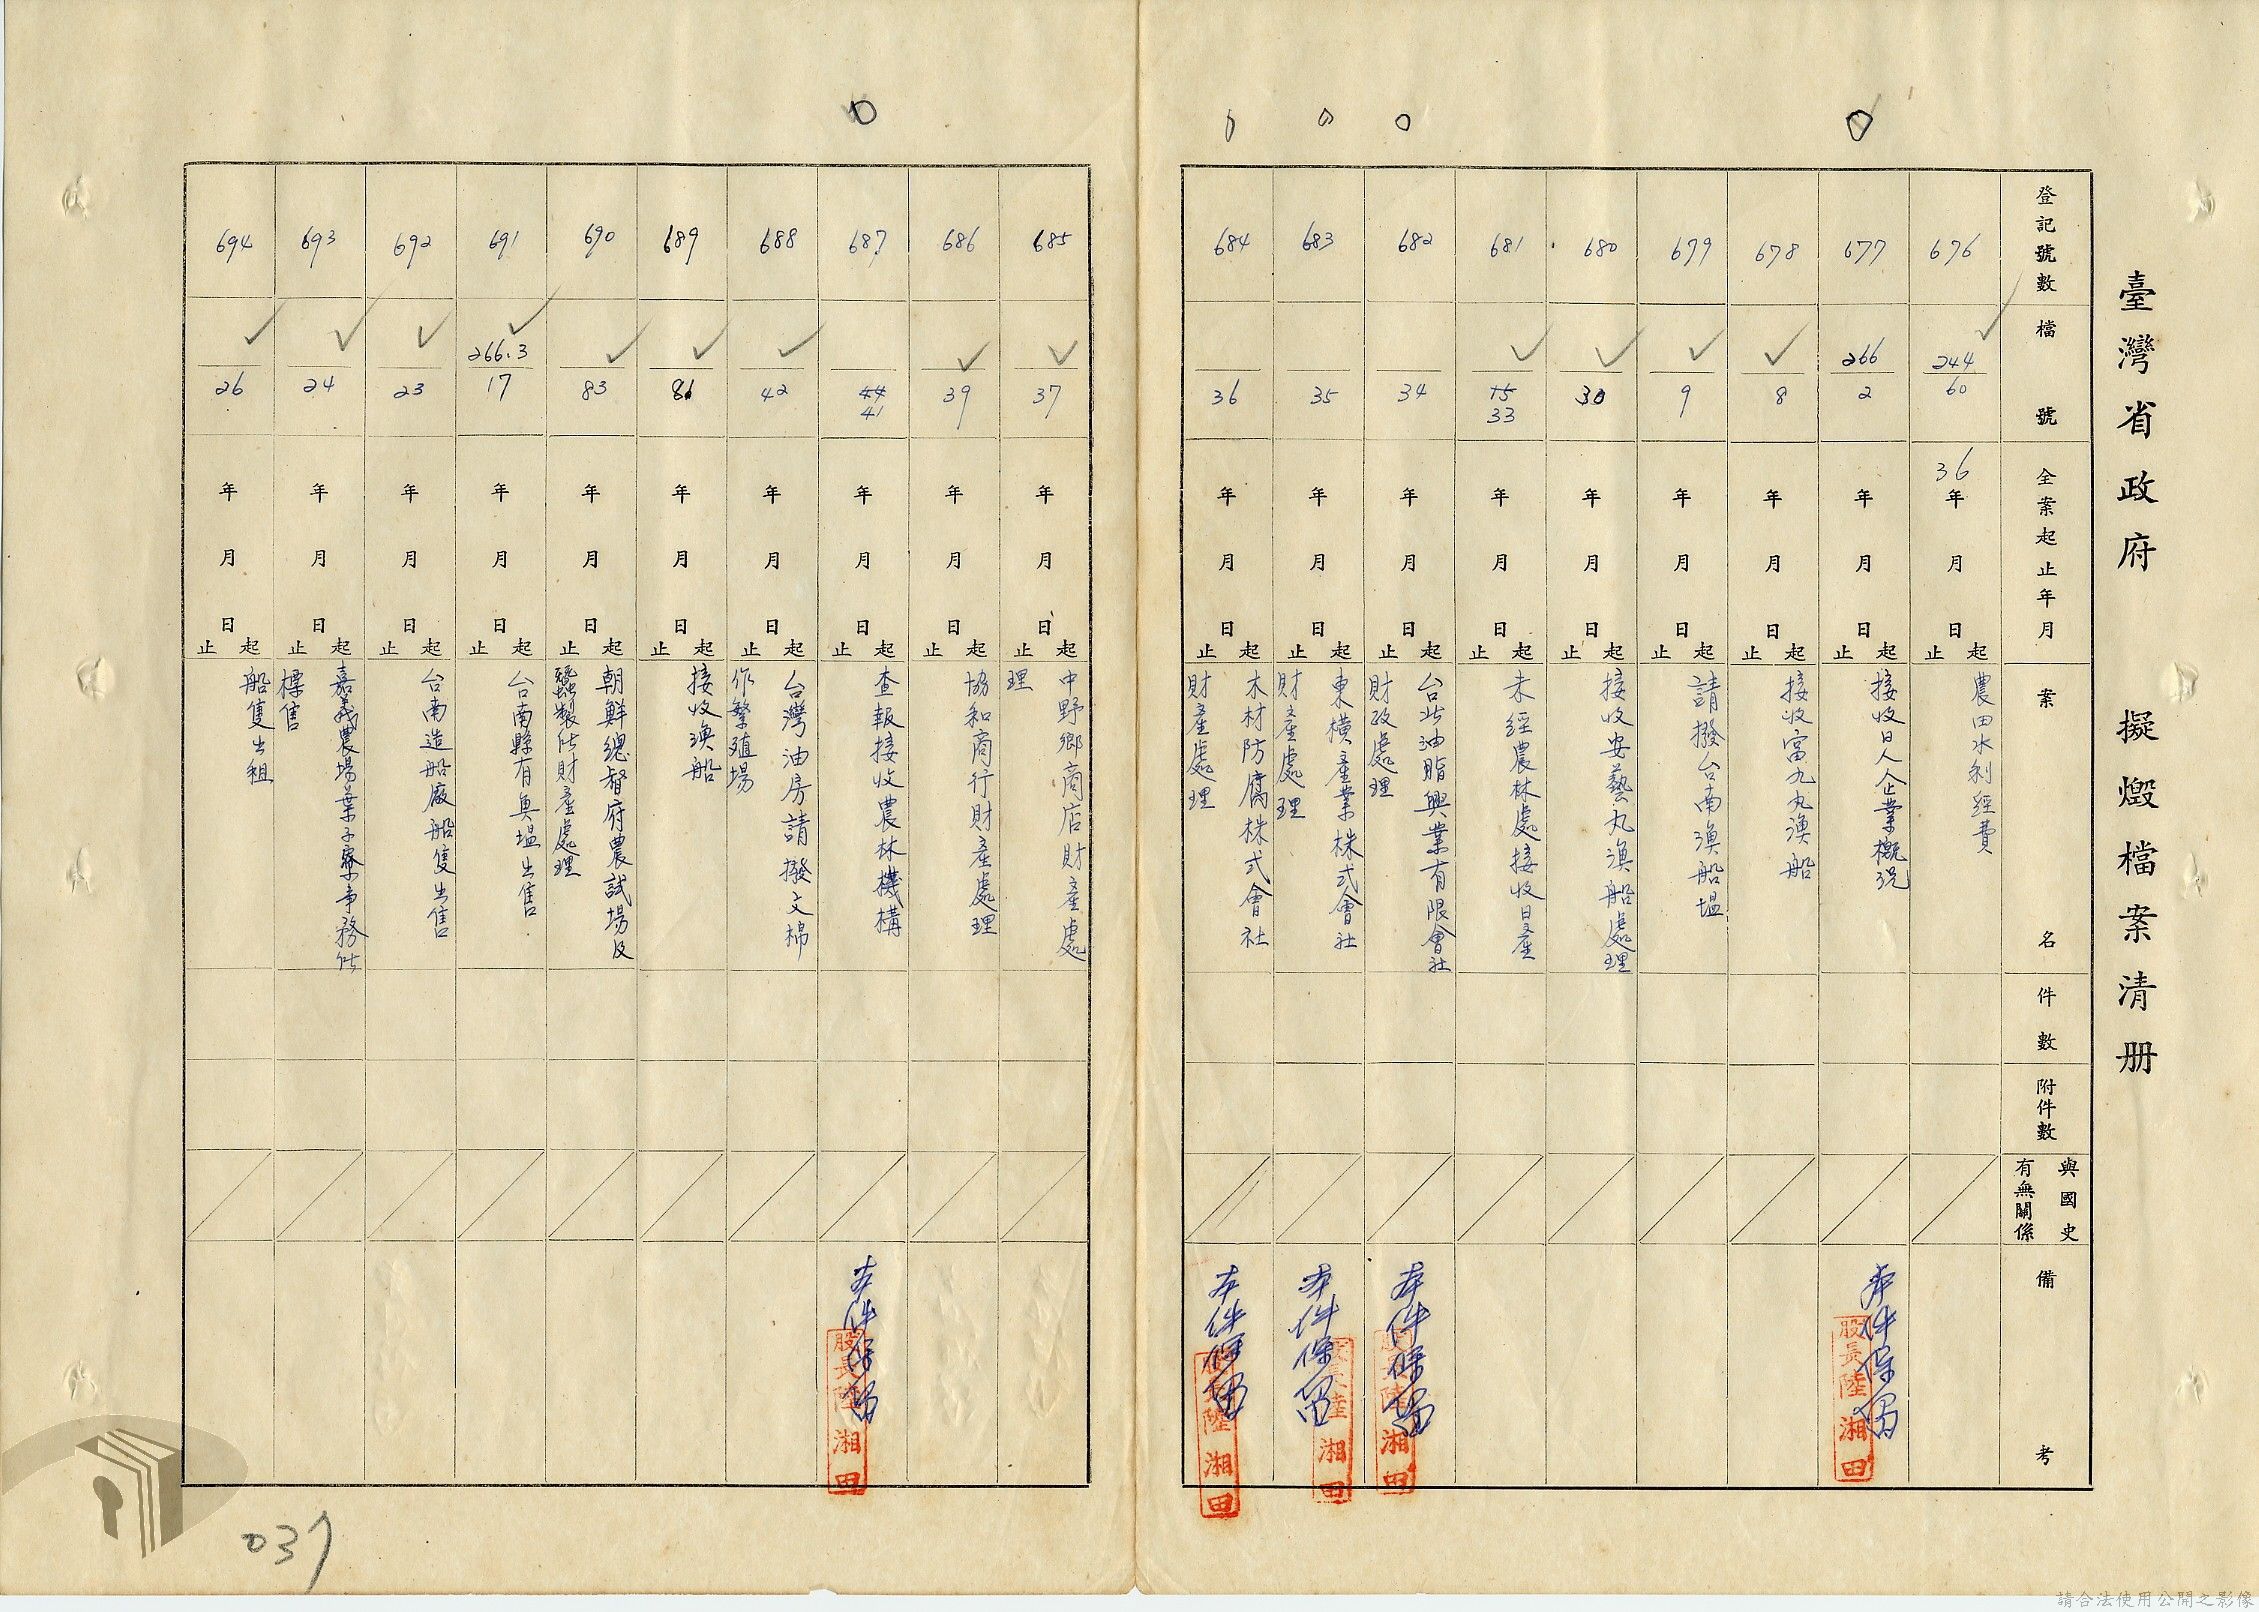 臺灣省政府 擬燬檔案清册
登記號數
檔號
全案起止年月
案名
件數
附件數
與國史有無關係
備考
676
244
60
36年月日起止
農田水利經費
677
266
2
年月日起止
接收日人企業概況
本件保留
股長陸湘田
678
8
年月日起止
接收富九丸漁船
679
9
年月日起止
請撥台南漁船塭
680
30
年月日起止
接收安藝丸漁船處理
681
15
33
年月日起止
未經農林處接收日產
682
34
年月日起止
台北油脂興業有限會社
財政處理
本件保留
股長陸湘田
683
35
年月日起止
東横產業株式會社
財產處理
本件保留
股長陸湘田
684
36
年月日起止
木材防腐株式會社
財產處理
本件保留
股長陸湘田
685
37
年月日起止
中野鄉商店財產處
理
686
39
年月日起止
協和商行財產處理
687
44
41
年月日起止
查報接收農林機構
本件保留
股長陸湘田
688
42
年月日起止
台灣油房請撥文棉
作繁殖場
689
81
年月日起止
接收漁船
690
83
年月日起止
朝鮮總督府農試場及
蠶製所財產處理
691
266.3
17
年月日起止
台南縣有魚塭出售
692
23
年月日起止
台南造船廠船隻出售
693
24
年月日起止
嘉義農場葉子寮事務所
標售
694
26
年月日起止
船隻出租
037
請合法使用公開之影像